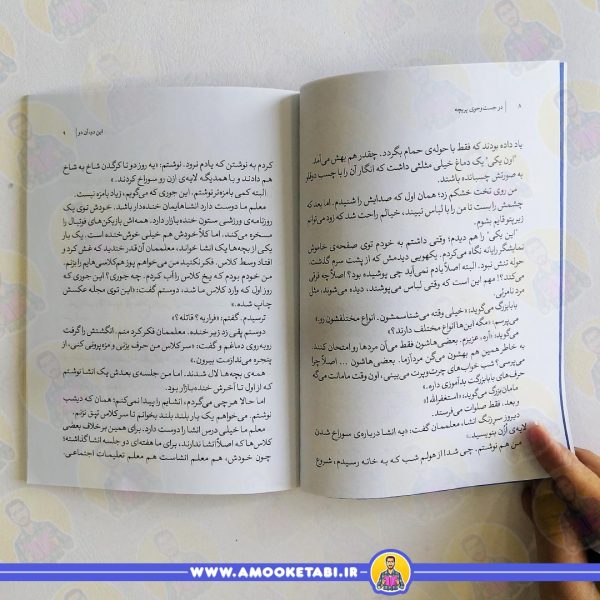 ۸ | در جست‌وجوی پریچه
یاد داده بودند که فقط با حوله‌ی حمام بگردد. چقدر هم بهش می‌آمد
"اون یکی" یک دماغ خیلی مثلثی داشت که انگار آن را با چسب دوقلو
به صورتش چسبانده باشند.
من روی تخت خشکم زد؛ همان اول که صدایش را شنیدم. اما بعد که
چشمش راست تا من را با لباس نبیند، خیالم راحت شد که زود می‌توانم
زیر پتو قایم بشوم.
"این یکی" را هم دیدم؛ وقتی داشتم به خودم توی صفحه‌ی خاموش
نمایشگر رایانه نگاه می‌کردم. یکهویی دیدمش که از پشت سرم گذشت.
حوله تنش نبود. البته اصلاً یادم نمی‌آید چی پوشیده بود؟ اصلاً چه فرقی
می‌کند؟! مهم این است که وقتی لباس می‌پوشند، دیده می‌شوند، مثل
مرد نامرئی.
بابابزرگ می‌گوید: «خیلی وقته می‌شناسمشون. انواع مختلفشون رو.»
می‌پرسم: «مگه این‌ها انواع مختلف دارند؟»
می‌گوید: «آره، عزیزم. بعضی‌هاشون فقط می‌آن مردها رو امتحان کنند.
به خاطر همین هم بهشون می‌گن مردآزما. بعضی‌هاشون ... اصلاً چرا
می‌پرسی؟ شب خواب‌های چرت‌وپرت می‌بینی، اون وقت مامانت می‌گه
حرف‌های بابابزرگت بدآموزی داره.»
مامان می‌گوید: «استغفرالله!»
و بعد، فقط صلوات می‌فرستد.
دیروز سر زنگ انشا، معلممان گفت: «یه انشا درباره‌ی سوراخ شدن
لایه‌ی ازن بنویسید.»
من هم نوشتم. چی شد! از هولم شب که به خانه رسیدم، شروع
این دو، آن دو | ۹
کردم به نوشتن که یادم نرود. نوشتم: «یه روز دو تا کرگدن شاخ به شاخ
هم دادند و با همدیگه لایه‌ی ازن رو سوراخ کردند.»
البته کمی بامزه‌تر نوشتم. این جوری که می‌گویم، زیاد بامزه نیست.
معلم ما دوست دارد انشاهایمان خنده‌دار باشد. خودش توی یک
روزنامه‌ی ورزشی ستون خنده‌بازار دارد. همه‌اش بازیکن‌های فوتبال را
مسخره می‌کند. اما کلاً خودش هم خیلی خوش‌خنده است. یک بار
یکی از بچه‌ها یک انشا خواند، معلممان آن‌قدر خندید که غش کرد و
افتاد وسط کلاس. فکر نکنید من می‌خواهم پوز هم‌کلاسی‌هایم را بزنم.
من خودم بودم که یخ کلاس را آب کردم. چه جوری؟ این جوری که
روز اول که وارد کلاس ما شد، دوستم گفت: «این توی مجله عکسش
چاپ شده.»
ترسیدم. گفتم: «فراریه؟ قاتله؟»
دوستم پقی زد زیر خنده. معلممان فکر کرد منم. انگشتش را گرفت
رویه‌روی دماغم و گفت: «سر کلاس من حرف بزنی و مزه بپرونی کنی، از
پنجره می‌ندازمت بیرون.»
همه‌ی بچه‌ها لال شدند. اما من جلسه‌ی بعدش یک انشا نوشتم
که از اول تا آخرش خنده‌بازار بود.
اما حالا هر چی می‌گردم، انشایم را پیدا نمی‌کنم؛ همان که دیشب
نوشتم. می‌خواهم یک بار بلند بلند بخوانم تا سر کلاس تپق نزنم.
معلم ما خیلی درس انشا را دوست دارد. برای همین برخلاف بعضی
کلاس‌ها که اصلاً انشا ندارند، برای ما هفته‌ای دو جلسه انشا گذاشته؛
چون خودش، هم معلم انشاست هم معلم تعلیمات اجتماعی.
WWW.AMOOKETABI.IR